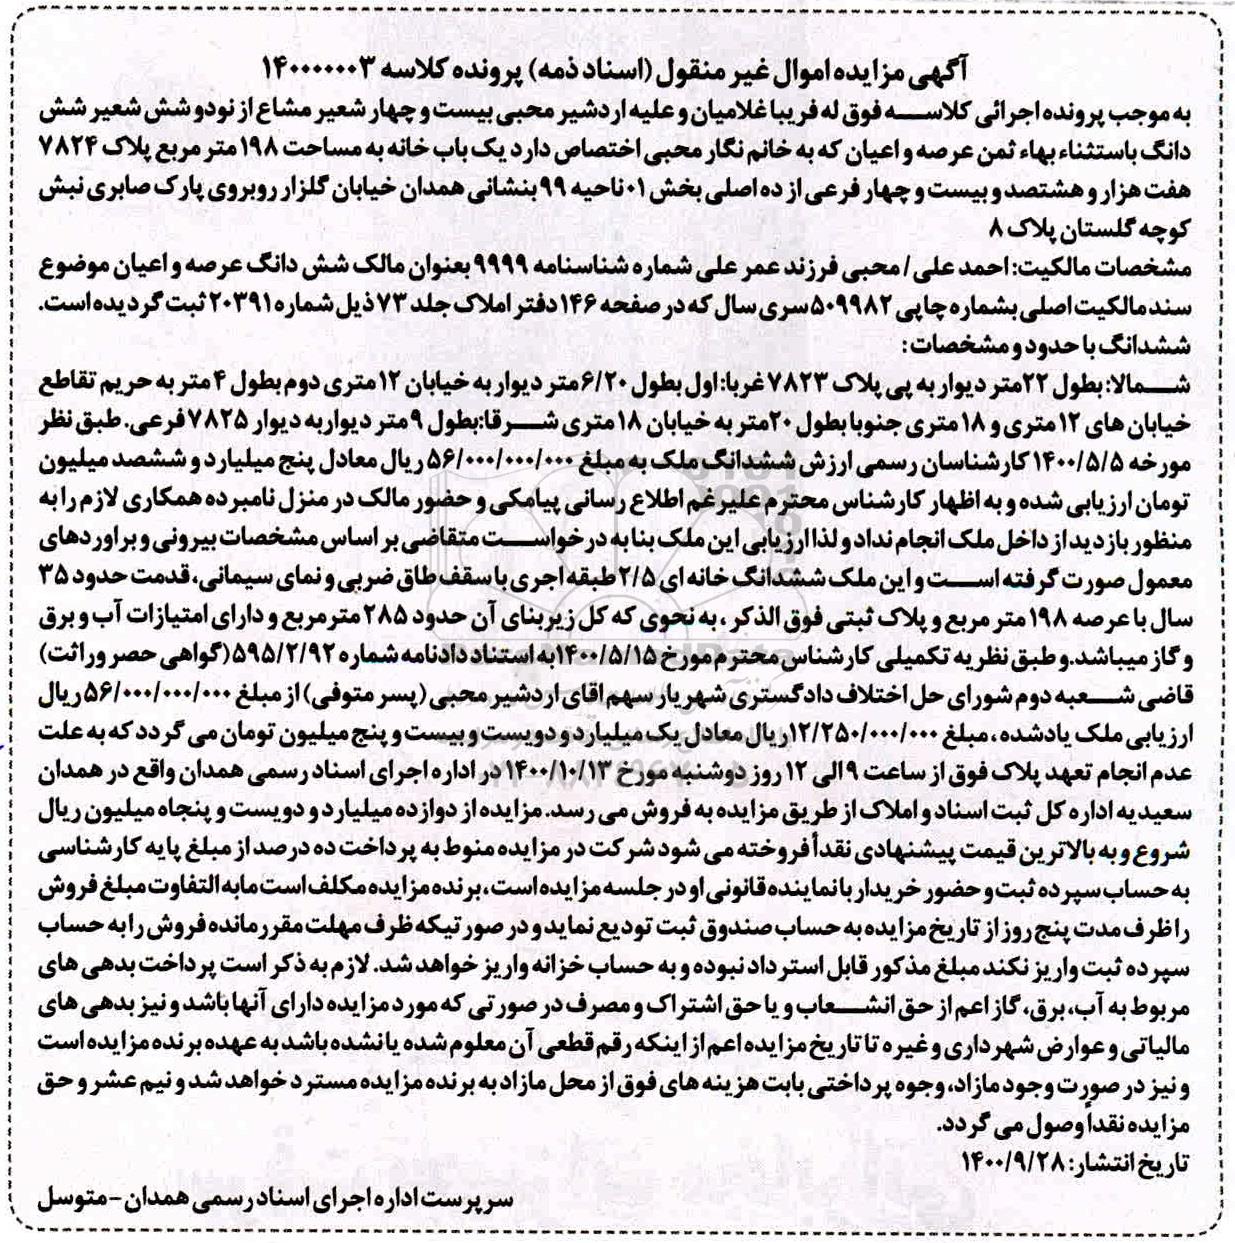 آگهی مزایده اموال غیر منقول (اسناد ذمه) پرونده کلاسه ۱۴۰۰۰۰۰۰۳
به موجب پرونده اجرائی کلاسه فوق له فریبا غلامیان و علیه اردشیر محبی بیست و چهار شعیر مشاع از نود و شش شعیر شش
دانگ باستثناء بهاء ثمن عرصه و اعیان که به خانم نگار محبی اختصاص دارد یک باب خانه به مساحت ۱۹۸ متر مربع پلاک ۷۸۲۴
هفت هزار و هشتصد و بیست و چهار فرعی از ده اصلی بخش ۰۱ ناحیه ۹۹ بنشانی همدان خیابان گلزار روبروی پارک صابری نبش
کوچه گلستان پلاک ۸
مشخصات مالکیت: احمد علی / محبی فرزند عمر علی شماره شناسنامه ۹۹۹۹ بعنوان مالک شش دانگ عرصه و اعیان موضوع
سند مالکیت اصلی بشماره چاپی ۵۰۹۹۸۲ سری سال که در صفحه ۱۴۶ دفتر املاک جلد ۷۳ ذیل شماره ۲۰۳۹۱ ثبت گردیده است.
ششدانگ با حدود و مشخصات:
شمالا: بطول ۲۲ متر دیوار به پی پلاک ۷۸۲۳ غربا: اول بطول ۶/۲۰ متر دیوار به خیابان ۱۲ متری دوم بطول ۴ متر به حریم تقاطع
خیابان های ۱۲ متری و ۱۸ متری جنوبا بطول ۲۰ متر به خیابان ۱۸ متری شرقا: بطول ۹ متر دیوار به دیوار ۷۸۲۵ فرعی. طبق نظر
مورخه ۱۴۰۰/۵/۵ کارشناسان رسمی ارزش ششدانگ ملک به مبلغ ۵۶/۰۰۰/۰۰۰/۰۰۰ ریال معادل پنج میلیارد و ششصد میلیون
تومان ارزیابی شده و به اظهار کارشناس محترم علیرغم اطلاع رسانی پیامکی و حضور مالک در منزل نامبرده همکاری لازم را به
منظور بازدید از داخل ملک انجام نداد و لذا ارزیابی این ملک بنا به درخواست متقاضی بر اساس مشخصات بیرونی و براوردهای
معمول صورت گرفته است و این ملک ششدانگ خانه ای ۲/۵ طبقه اجری با سقف طاق ضربی و نمای سیمانی، قدمت حدود ۳۵
سال با عرصه ۱۹۸ متر مربع و پلاک ثبتی فوق الذکر، به نحوی که کل زیربنای آن حدود ۲۸۵ متر مربع و دارای امتیازات آب و برق
و گاز میباشد. و طبق نظریه تکمیلی کارشناس محترم مورخ ۱۴۰۰/۵/۱۵ به استناد دادنامه شماره ۵۹۵/۲/۹۲ (گواهی حصر وراثت)
قاضی شعبه دوم شورای حل اختلاف دادگستری شهریار سهم اقای اردشیر محبی (پسر متوفی) از مبلغ ۵۶/۰۰۰/۰۰۰/۰۰۰ ریال
ارزیابی ملک یادشده، مبلغ ۱۲/۲۵۰/۰۰۰/۰۰۰ ریال معادل یک میلیارد و دویست و بیست و پنج میلیون تومان می گردد که به علت
عدم انجام تعهد پلاک فوق از ساعت ۹ الی ۱۲ روز دوشنبه مورخ ۱۴۰۰/۱۰/۱۳ در اداره اجرای اسناد رسمی همدان واقع در همدان
سعیدیه اداره کل ثبت اسناد و املاک از طریق مزایده به فروش می رسد. مزایده از دوازده میلیارد و دویست و پنجاه میلیون ریال
شروع و به بالاترین قیمت پیشنهادی نقدأ فروخته می شود شرکت در مزایده منوط به پرداخت ده درصد از مبلغ پایه کارشناسی
به حساب سپرده ثبت و حضور خریدار با نماینده قانونی او در جلسه مزایده است، برنده مزایده مکلف است مابه التفاوت مبلغ فروش
را ظرف مدت پنج روز از تاریخ مزایده به حساب صندوق ثبت تودیع نماید و در صورتیکه ظرف مهلت مقرر مانده فروش را به حساب
سپرده ثبت واریز نکند مبلغ مذکور قابل استرداد نبوده و به حساب خزانه واریز خواهد شد. لازم به ذکر است پرداخت بدهی های
مربوط به آب، برق، گاز اعم از حق انشعاب و یا حق اشتراک و مصرف در صورتی که مورد مزایده دارای آنها باشد و نیز بدهی های
مالیاتی و عوارض شهرداری و غیره تا تاریخ مزایده اعم از اینکه رقم قطعی آن معلوم شده یا نشده باشد به عهده برنده مزایده است
و نیز در صورت وجود مازاد، وجوه پرداختی بابت هزینه های فوق از محل مازاد به برنده مزایده مسترد خواهد شد و نیم عشر و حق
مزایده نقدأ وصول می گردد.
تاریخ انتشار: ۱۴۰۰/۹/۲۸
سرپرست اداره اجرای اسناد رسمی همدان - متوسل